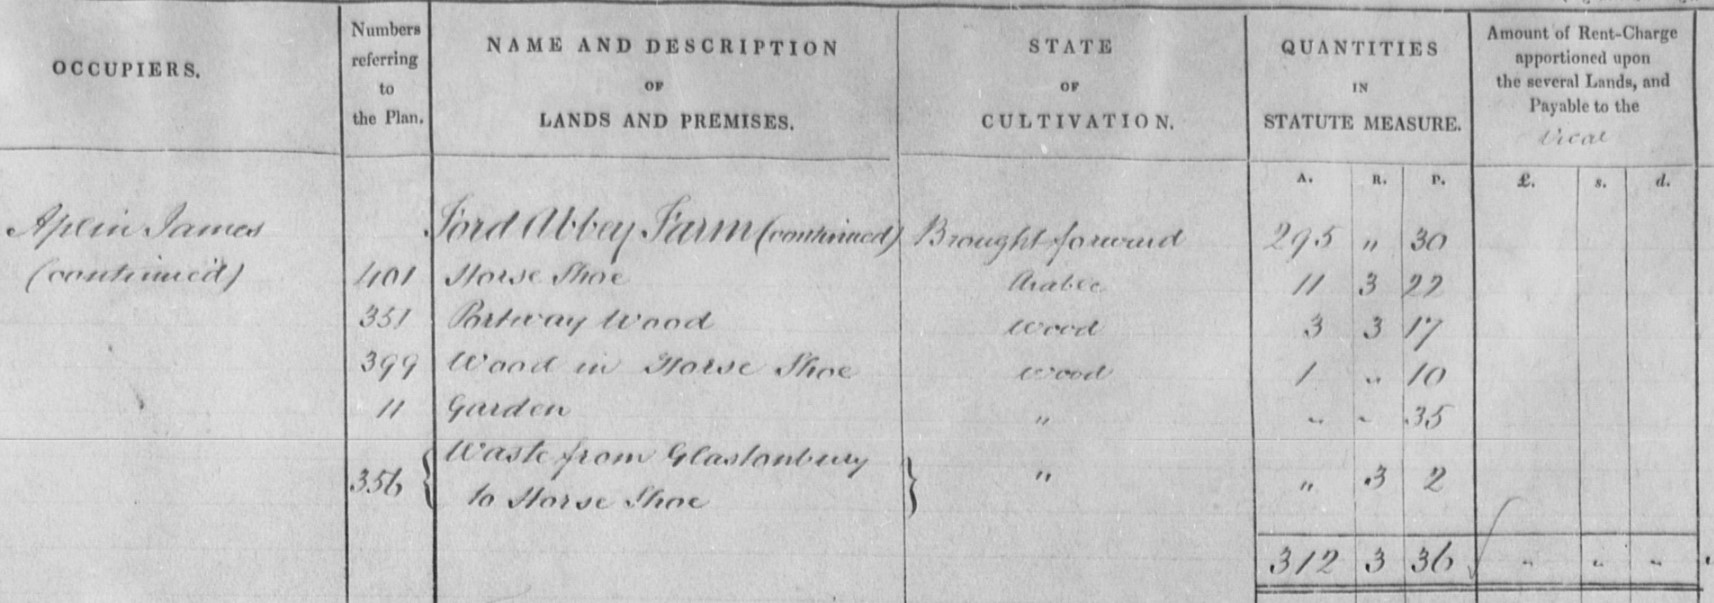 OCCUPIERS. Numbers referring to the Plan. NAME AND DESCRIPTION OF LANDS AND PREMISES. STATE OF CULTIVATION. QUANTITIES IN STATUTE MEASURE. Amount of Rent-Charge apportioned upon the several Lands, and Payable to the Vicar
A. R. P. £. s. d.
Aplin James Ford Abbey Farm (continued) Brought forward 295 " 30
(continued) 401 Horse Shoe Arable 11 3 22
351 Portway Wood Wood 3 3 17
399 Wood in Horse Shoe Wood 1 " 10
11 Garden " " " 35
356 { Waste from Glastonbury
to Horse Shoe } " " 3 2
312 3 36 " " "